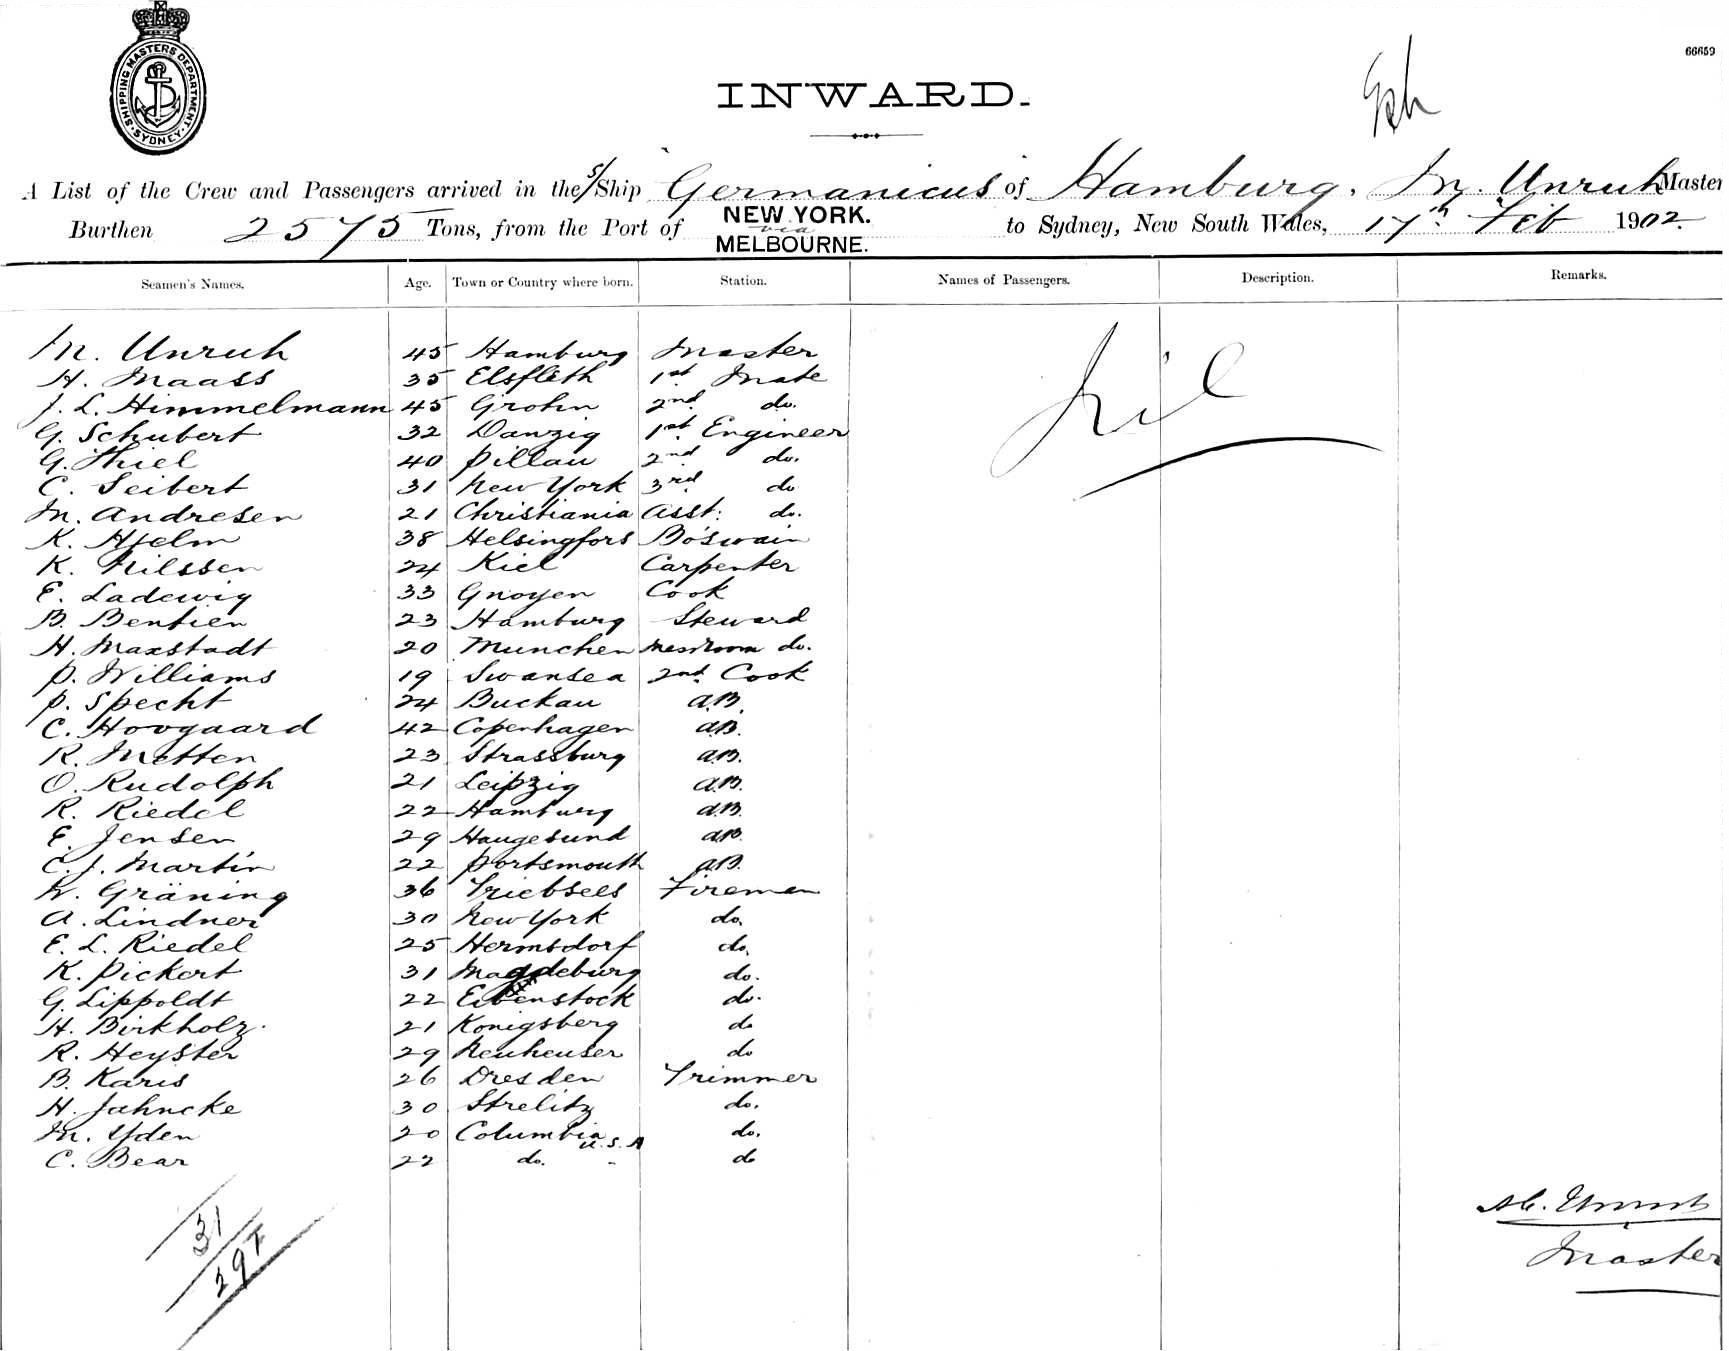 SHIPPING MASTERS DEPARTMENT. SYDNEY.
66659
INWARD.
A List of the Crew and Passengers arrived in the S/Ship Germanicus of Hamburg, M. Unruh Master
Burthen 2575 Tons, from the Port of NEW YORK. via MELBOURNE. to Sydney, New South Wales, 17th Feb 1902.
Seamen's Names. Age. Town or Country where born. Station. Names of Passengers. Description. Remarks.
M. Unruh 45 Hamburg Master
Nil
H. Maass 35 Elsfleth 1st Mate
J. L. Himmelmann 45 Grohn 2nd do.
G. Schubert 32 Danzig 1st Engineer
G. Thiel 40 Pillau 2nd do.
C. Seibert 31 New York 3rd do
M. Andresen 21 Christiania Asst: do.
K. Hjelm 38 Helsingfors Bo'swain
K. Nilssen 24 Kiel Carpenter
E. Ladewig 33 Gnoyen Cook
B. Bentien 23 Hamburg Steward
H. Maxstadt 20 Munchen Messroom do.
P. Williams 19 Swansea 2nd Cook
P. Specht 24 Buckau A.B.
C. Hovgaard 42 Copenhagen A.B.
R. Metten 23 Strassburg A.B.
O. Rudolph 21 Leipzig A.B.
R. Riedel 22 Hamburg A.B.
E. Jensen 29 Haugesund A.B.
C. J. Martin 22 Portsmouth A.B.
W. Gräning 36 Triebsees Fireman
A. Lindner 30 New York do.
E. L. Riedel 25 Hermsdorf do.
K. Pickert 31 Magdeburg do.
G. Lippoldt 22 Eibenstock do.
H. Birkholz. 21 Konigsberg do
R. Heyster 29 Neuheuser do
B. Karis 26 Dresden Trimmer
H. Jahncke 30 Strelitz do.
M. Yden 20 Columbia U.S.A do.
C. Bear 22 do. - do
31
297
M. Unruh
Master